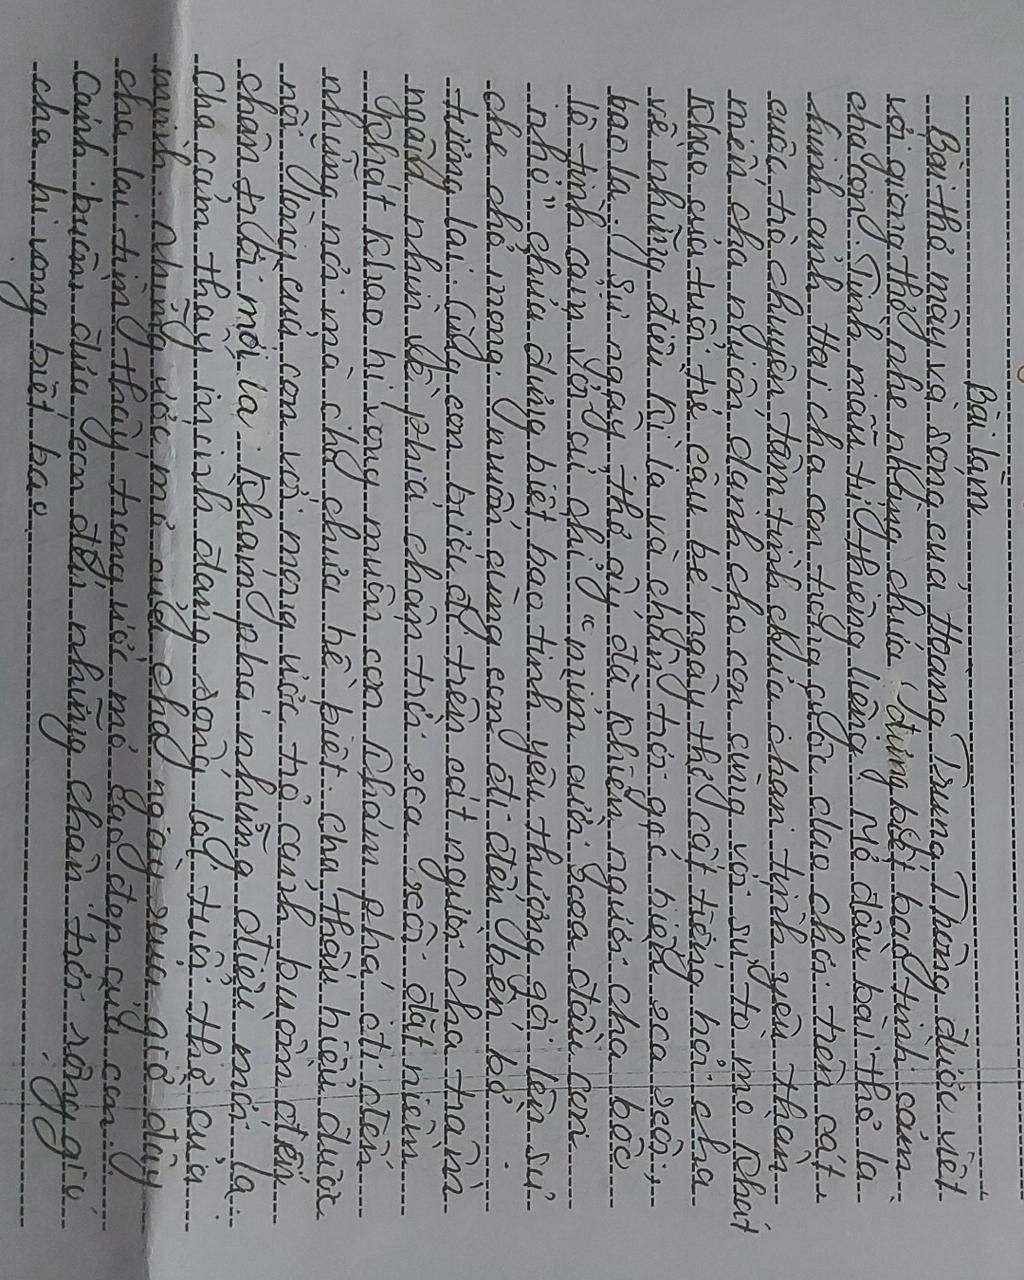 Bài làm
Bài thơ mây và sóng của Hoàng Trung Thông được viết
với giọng thơ nhẹ nhàng chứa đựng biết bao tình cảm
cha con. Tình mẫu tử thiêng liêng. Mở đầu bài thơ là
hình ảnh Hai cha con trong cuộc dạo chơi trên cát
cuộc trò chuyện tâm tình chứa chan tình yêu thầm
miền cha nguồn dành cho con cùng với sự tò mò khát
khao của tuổi trẻ cậu bé ngây thơ cất tiếng hỏi cha
về những điều kì lạ và chân trời góc biển xa xôi,
bao la. Sự ngây thơ ấy đã khiến người cha bộc
lộ tình cảm với cử chỉ "mỉm cười xoa đầu con
nhỏ" chứa đựng biết bao tình yêu thương gợi lên sự
che chở mong muốn cùng con đi đến bến bờ
tương lai. Cùng con bước đi trên cát người cha trầm
ngâm nhìn về phía chân trời xa xôi đặt niềm
khát khao hi vọng muốn con khám phá đi đến
những nơi mà cha chưa hề biết. cha thấu hiểu được
nỗi lòng của con với mong ước trỏ cánh buồm đến
chân trời mới lạ khám phá những điều mới lạ.
Cha cảm thấy mình đang sống lại tuổi thơ của
mình những ước mơ của cha ngày xưa giờ đây
cha lại tìm thấy trong ước mơ cao đẹp của con.
Cánh buồm đưa con đến những chân trời rộng giú
cha hi vọng biết bao